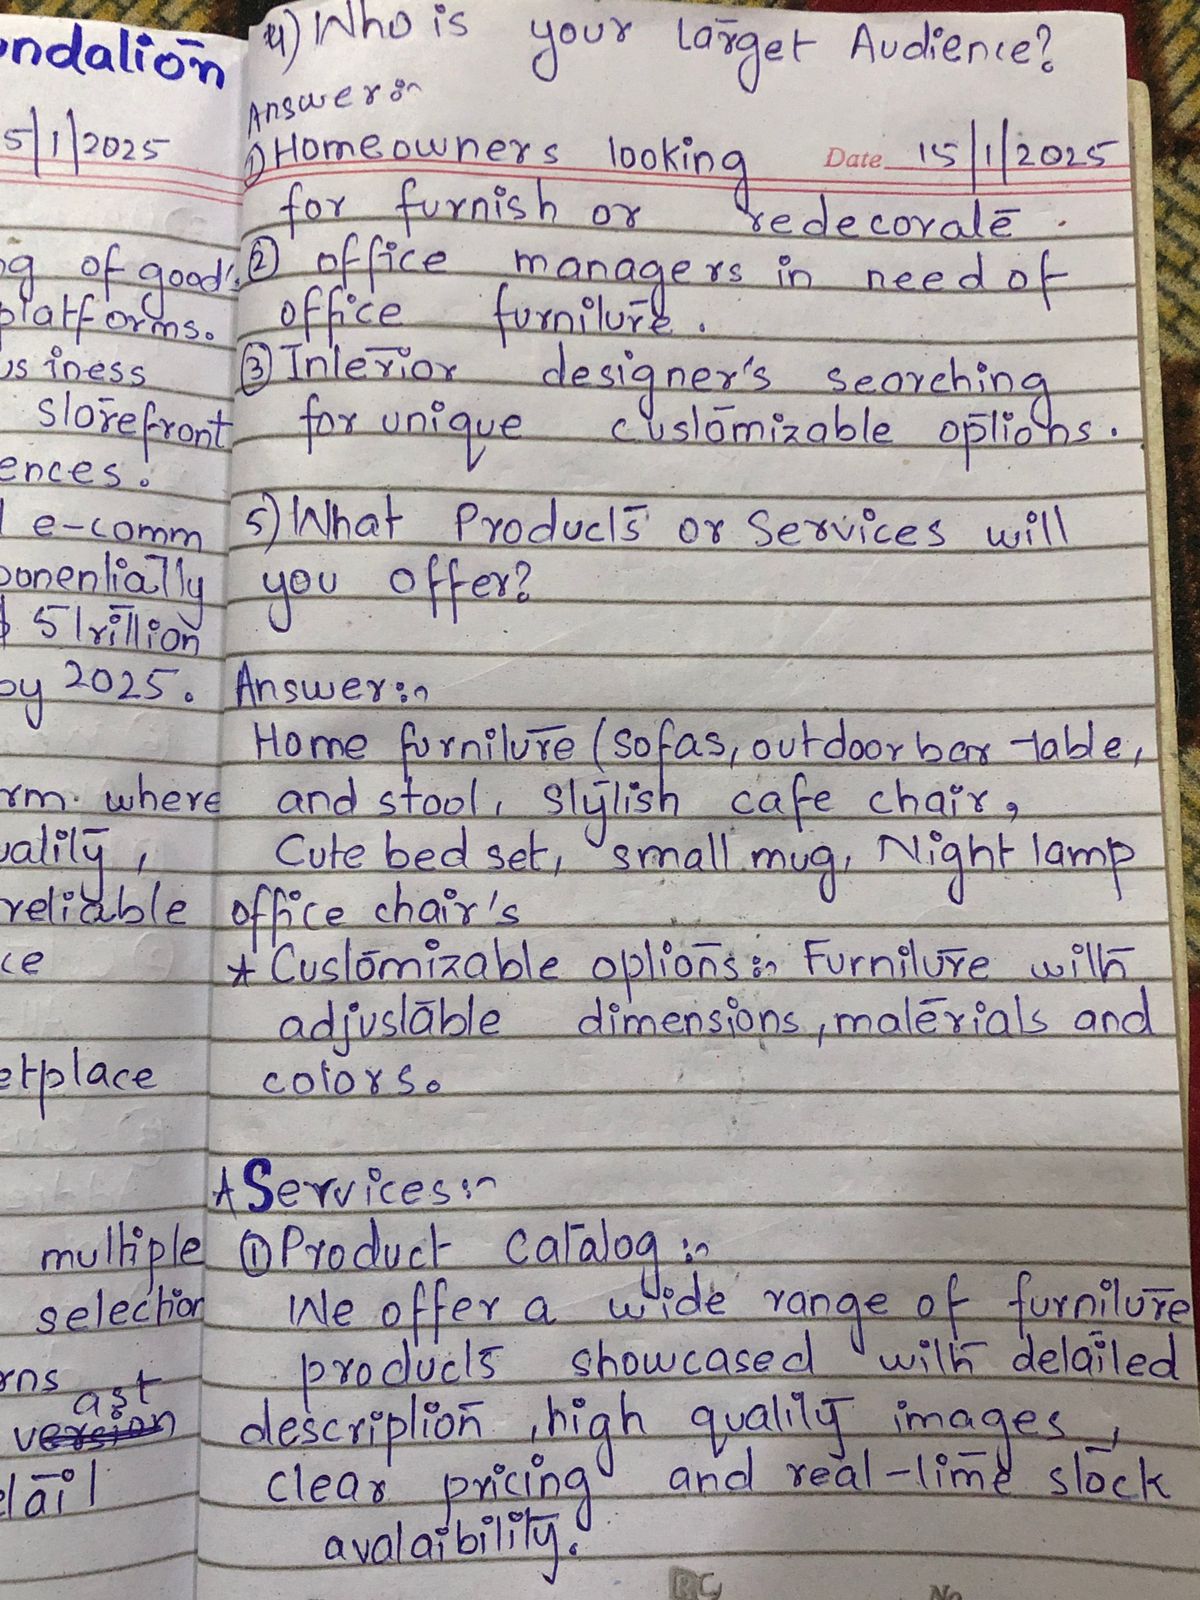 ondation
5/1/2025
ng of good's
platforms.
usiness
storefront
ences.
e-comm
ponentially
$ 5 trillion
by 2025.
rm. where
uality,
reliable
ce
etplace
multiple
selection
rns
ast
version
tail
4) Who is your Target Audience?
Answer:~
Date 15/1/2025
① Homeowners looking
for furnish or redecorate.
② office managers in need of
office furniture.
③ Interior designer's searching
for unique customizable options.
5) What Products or Services will
you offer?
Answer:~
Home furniture (sofas, outdoor bar table,
and stool, stylish cafe chair,
Cute bed set, small mug, Night lamp
office chair's
* Customizable options:~ Furniture with
adjustable dimensions, materials and
colors.
* Services:~
① Product Catalog:~
We offer a wide range of furniture
products showcased with detailed
description, high quality images,
clear pricing and real-time stock
avalaibility.
RC
No